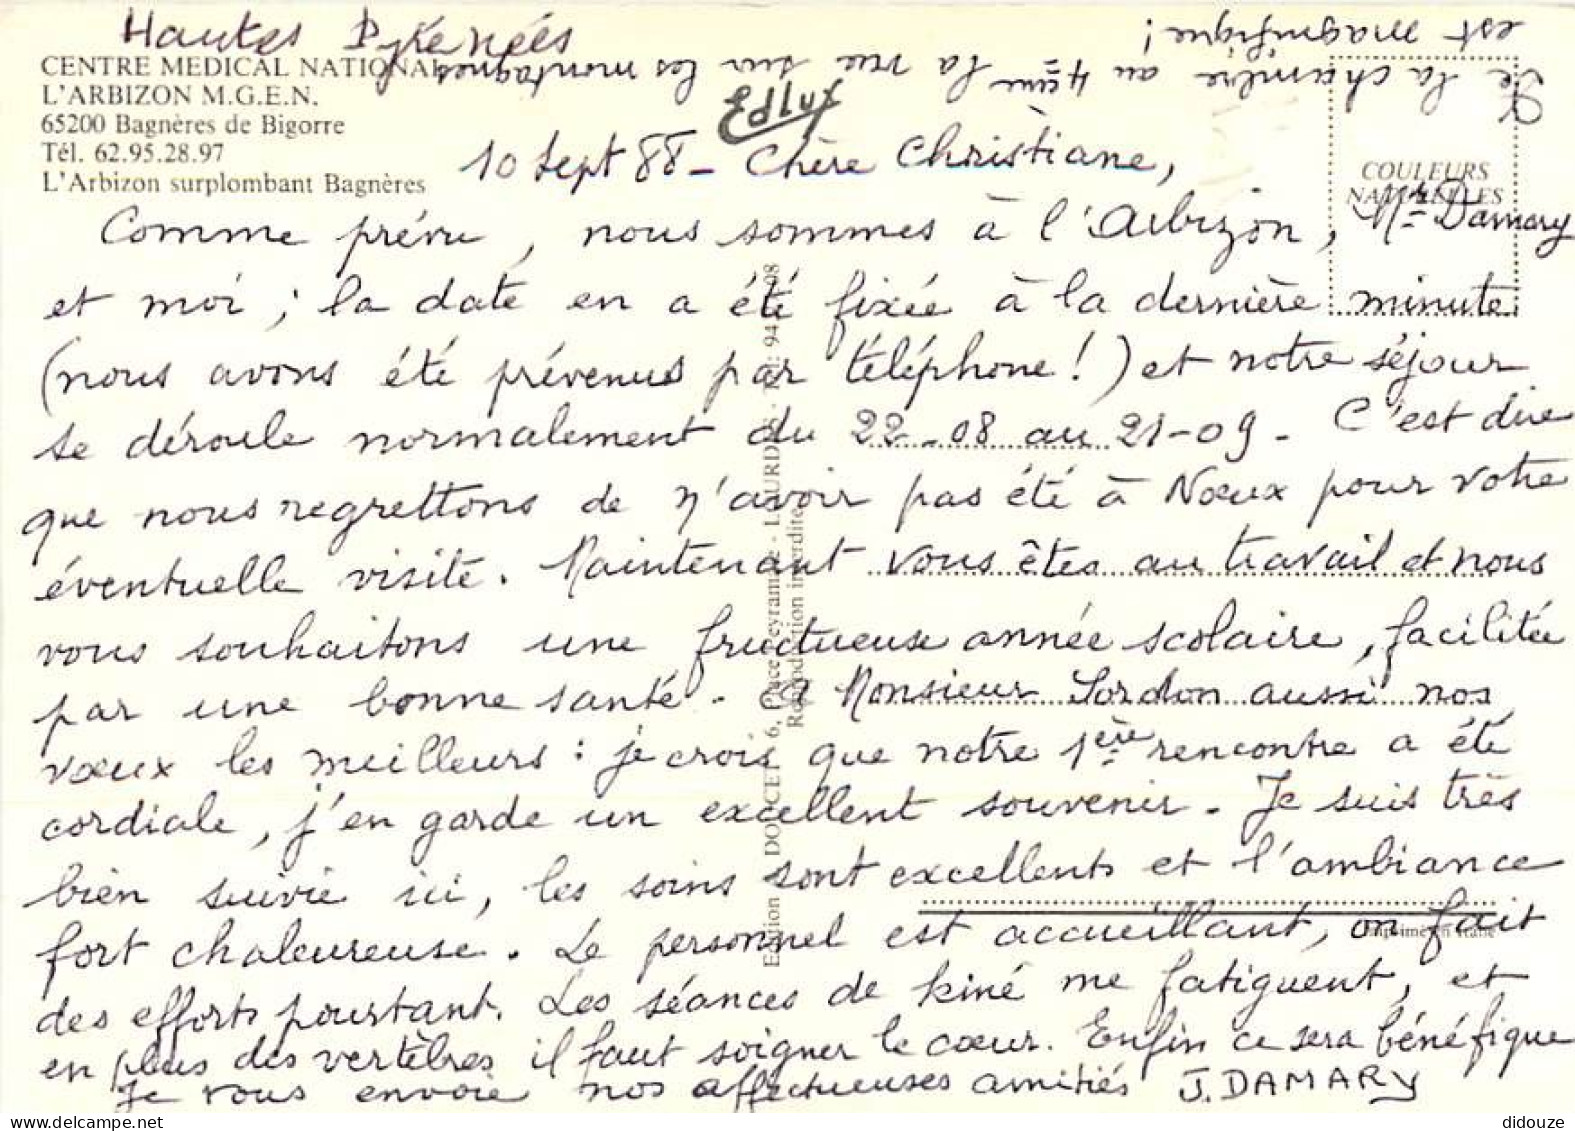 Hautes Pyrénées
CENTRE MEDICAL NATIONAL
L'ARBIZON M.G.E.N.
65200 Bagnères de Bigorre
Tél. 62.95.28.97
L'Arbizon surplombant Bagnères
De la chambre au 4ème la vue sur les montagnes
est magnifique !
COULEURS
NATURELLES
10 Sept 88 - Chère Christiane,
Comme prévu, nous sommes à l'Arbizon, Mr Damary
et moi ; la date en a été fixée à la dernière minute
(nous avons été prévenus par téléphone !) et notre séjour
se déroule normalement du 22-08 au 21-09 - C'est dire
que nous regrettons de n'avoir pas été à Nœux pour votre
éventuelle visite. Maintenant vous êtes au travail et nous
vous souhaitons une fructueuse année scolaire, facilitée
par une bonne santé. A Monsieur Sordon aussi nos
vœux les meilleurs : je crois que notre 1ère rencontre a été
cordiale, j'en garde un excellent souvenir. Je suis très
bien suivie ici, les soins sont excellents et l'ambiance
fort chaleureuse. Le personnel est accueillant, on fait
des efforts pourtant. Les séances de kiné me fatiguent, et
en plus des vertèbres il faut soigner le cœur. Enfin ce sera bénéfique
Je vous envoie nos affectueuses amitiés J. DAMARY
Reproduction interdite
Imprimé en Italie
didouze